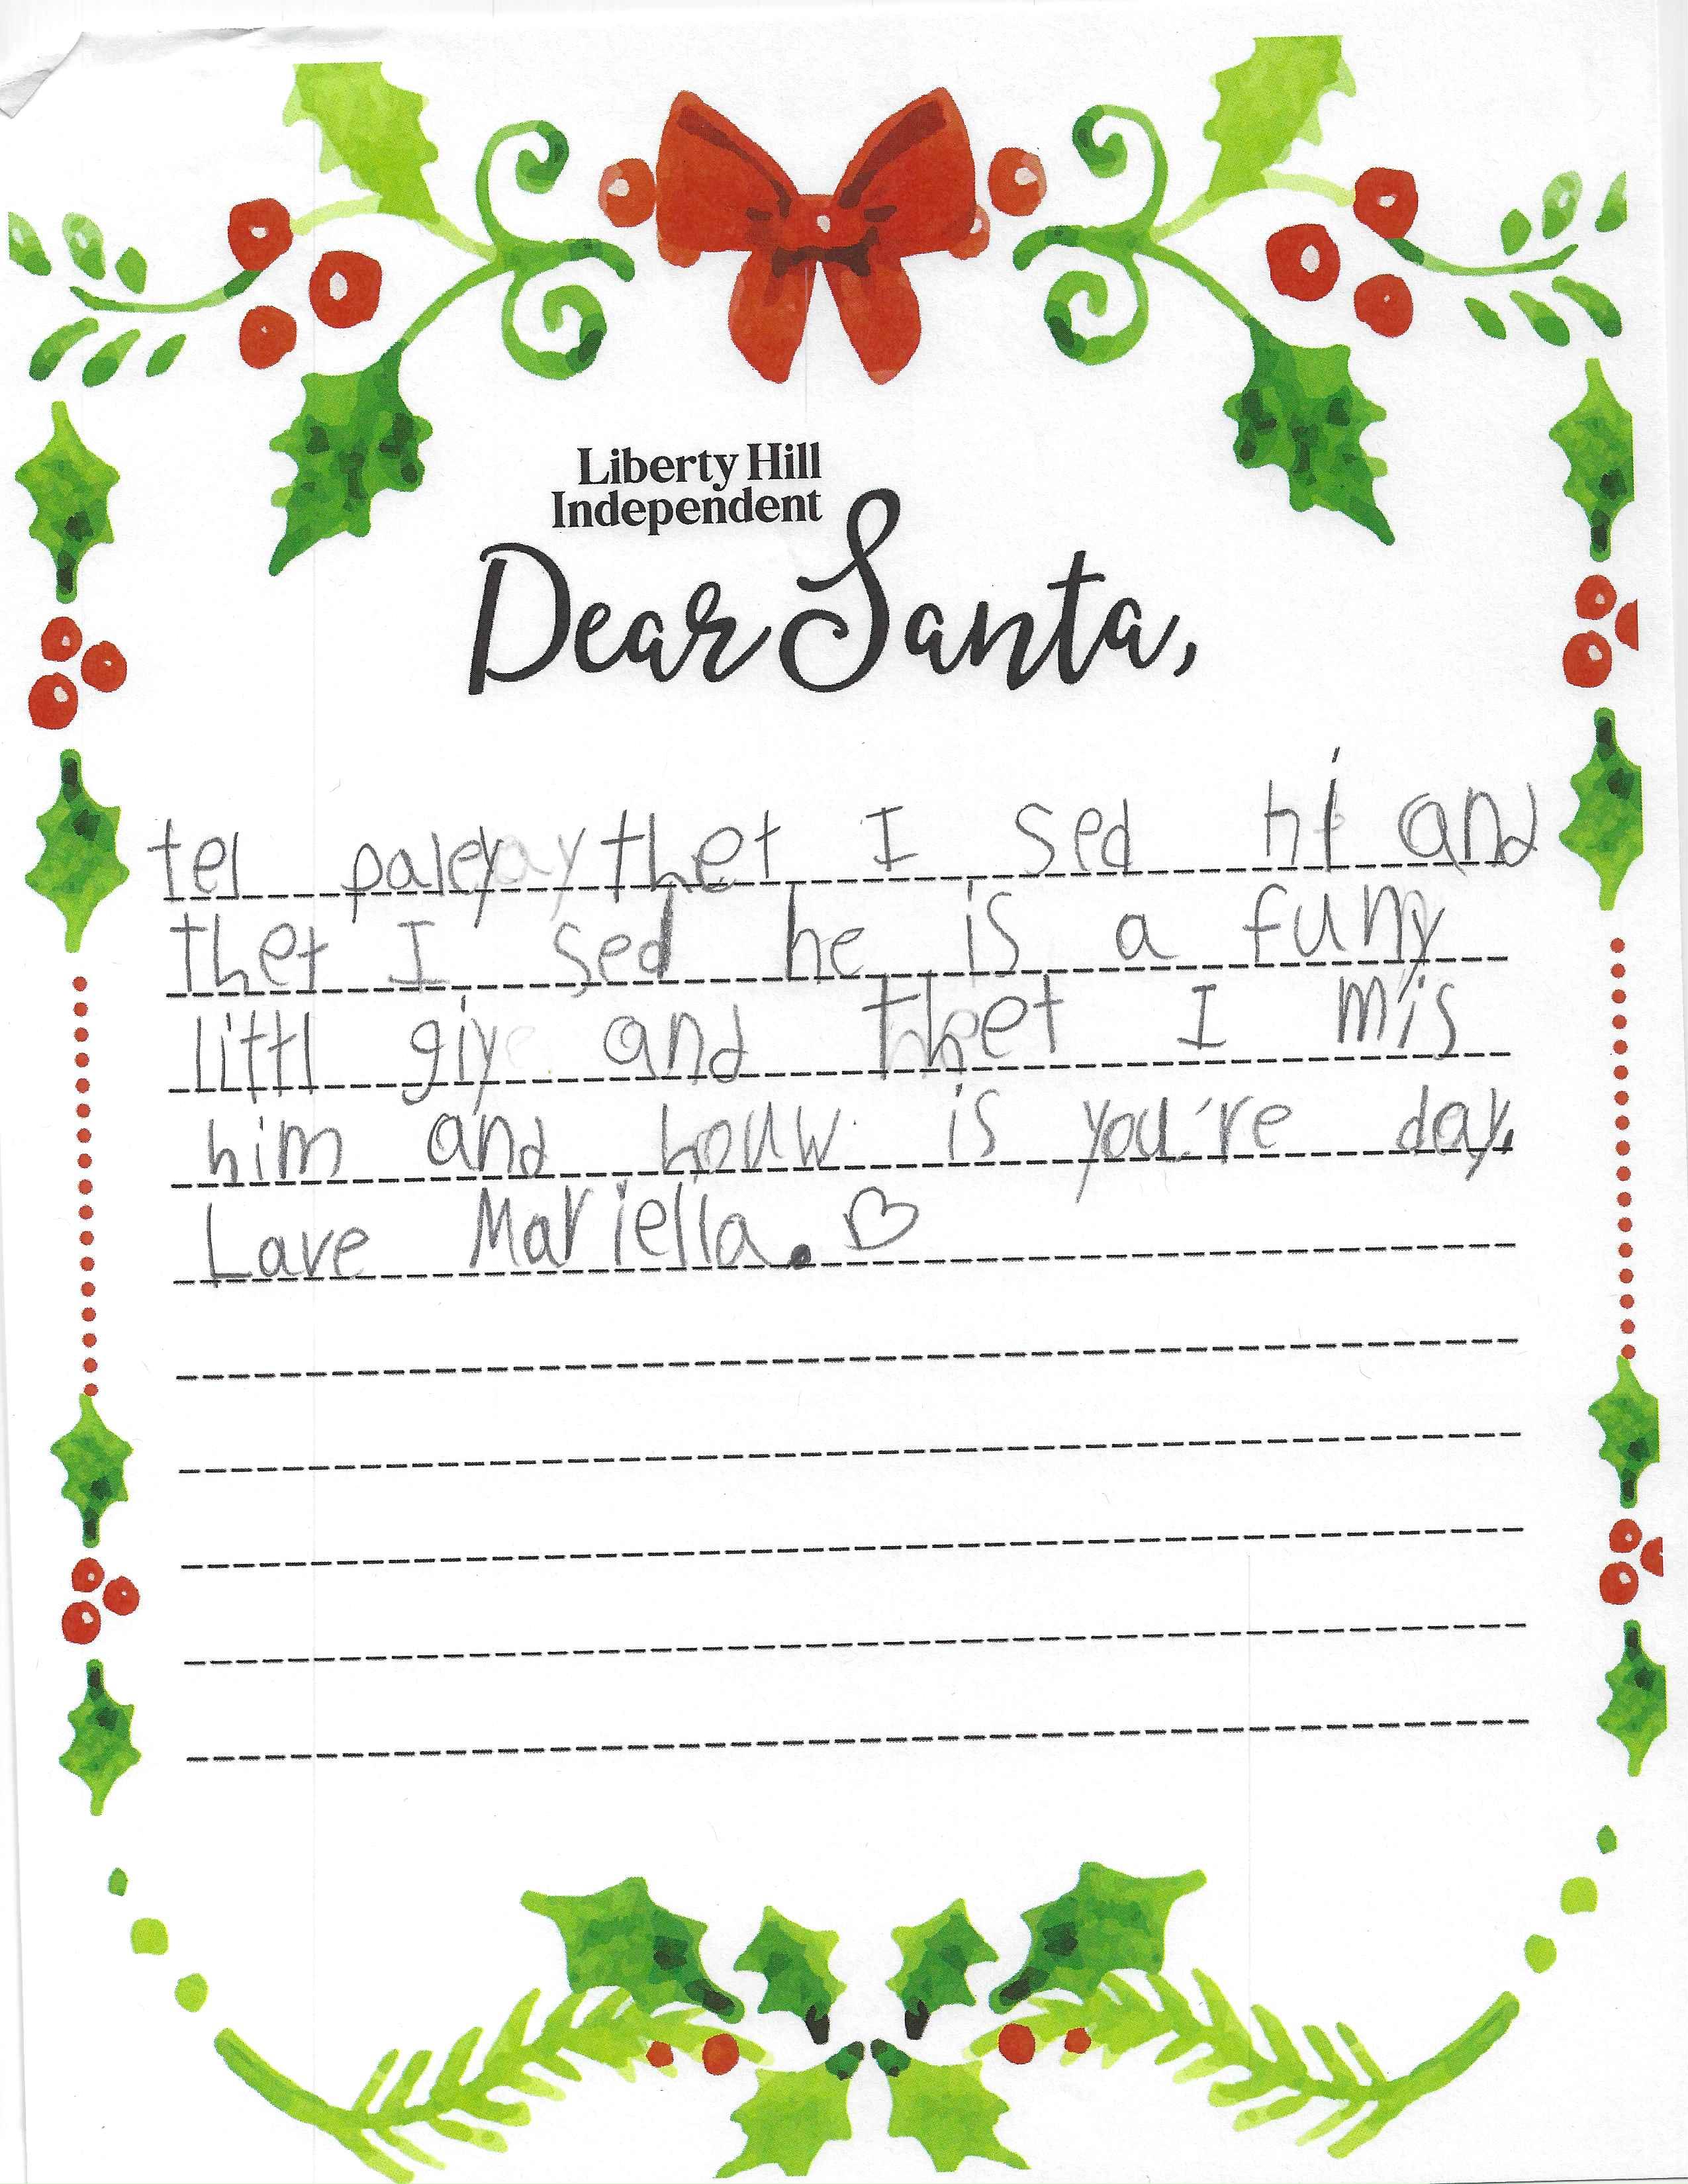 Liberty Hill
Independent
Dear Santa,
tel paley thet I sed hi and
thet I sed he is a funy
littl giy and thet I mis
him and houw is you're day.
Lave Mariella.